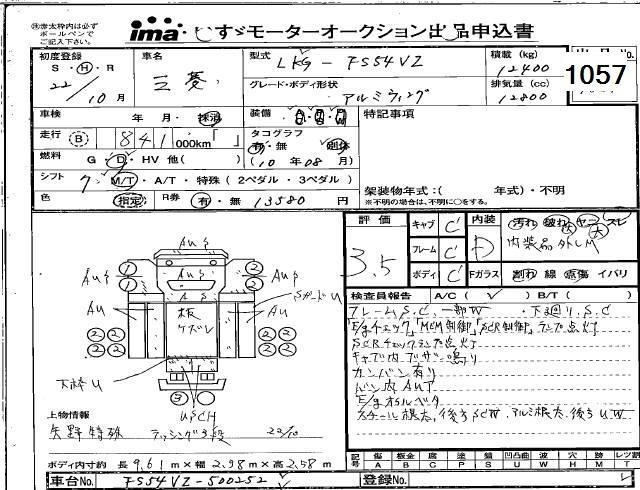 ㊟赤太枠内は必ず
ボールペンで
ご記入下さい。
ima いすゞモーターオークション出品申込書
初度登録
S・H・R
22/10月
車名
三菱
型式
LKG-FS54VZ
グレード・ボディ形状
アルミウィング
積載 (kg)
12400
排気量 (cc)
12800
1057
車検 年・月・抹消
走行 B 841 000km「 」
燃料 G・D・HV 他( )
シフト 7 M/T・A/T・特殊 (2ペダル・3ペダル)
色 指定 R券 有・無 13580 円
装備
タコグラフ
有・無 別体
(10年08月)
特記事項
架装物年式:( 年式)・不明
※不明の場合は、不明に○をする。
評価
3.5
キャブ C
フレーム C
ボディ C
内装
D
汚れ 破れ ヤニ スレ
大 大
内装品外しM
Fガラス 割れ 線 点傷 イバリ
検査員報告 A/C( ✓ ) B/T( )
フレームS.C 一部W ・下回りS.C
E/gチェック、「MEM制御」「SCR制御」ランプ点灯
SCRチェックランプ点灯
キャブ内ブザー鳴り
カンバン有り
バン内AUT
E/gオルベタ
スチール根太、後方SCW アルミ根太、後方UW
AUS
AUS
AUS
AU
AU
SガードU
板
ケズレ
下枠U
USCH
上物情報
矢野特殊
22/10
ボディ内寸約 長 9.61 m×幅 2.38 m×高 2.58 m
記号
傷 板金 腐 塗 錆 凹凸曲 凹 穴 欠 目 レツ割
A B C P S U W H M T L
車台No. FS54VZ-500252
登録No.